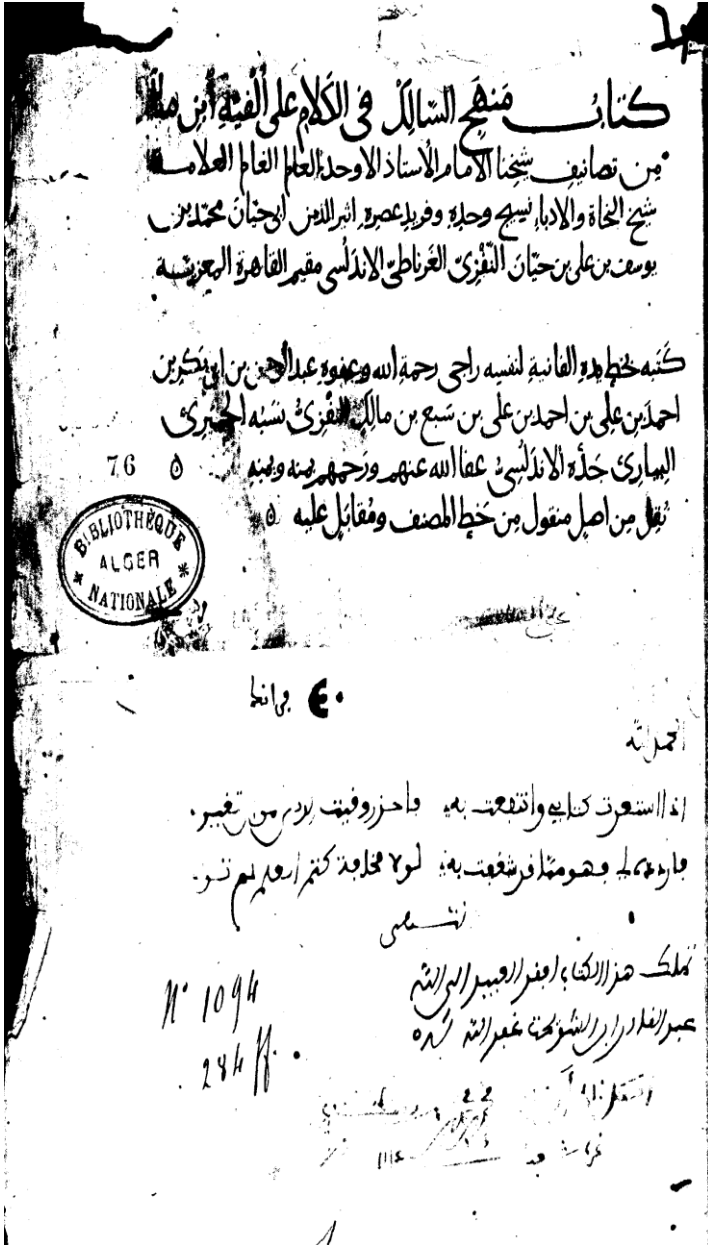 كتاب مَنهَج السّالِك في الكَلام على ألفيّة ابن مالك
مِن تصانيف شيخنا الامام الأستاذ الاوحد العالم العامل العلامة
شيخ النحاة والادباء نسيج وحده وفريد عصره اثير الدين ابي حيّان محمّد بن
يوسف بن علي بن حيّان النّفْزيّ الغَرناطيّ الاندلُسي مقيم القاهرة المعزيّة
كَتَبه بخط يده الفانية لنفسه راجي رحمة الله وعفوه عبد الرحمن بن ابي بَكر بن
احمد بن علي بن احمد بن علي بن سَبع بن مالك النّفْزيّ نسَبُه الحِمْيَري
جَدُّه الاندلُسيّ عفا الله عنهم ورَحمهم بمنه ويمنه
76
نقل مِن اصل منقول مِن خَط المصنف ومُقابَل عليه
BIBLIOTHÈQUE
ALGER
NATIONALE
٤٠
الحمد لله
اذا استعرت كتابي وانتفعت به فاحذر وقيت الردى من تغير
فاردده لي لولا مخافة كتم العلم لم تر
تملك هذا الكتاب افقر العبيد الى الله
عبد القادر غفر الله
N° 1094
284 ff.